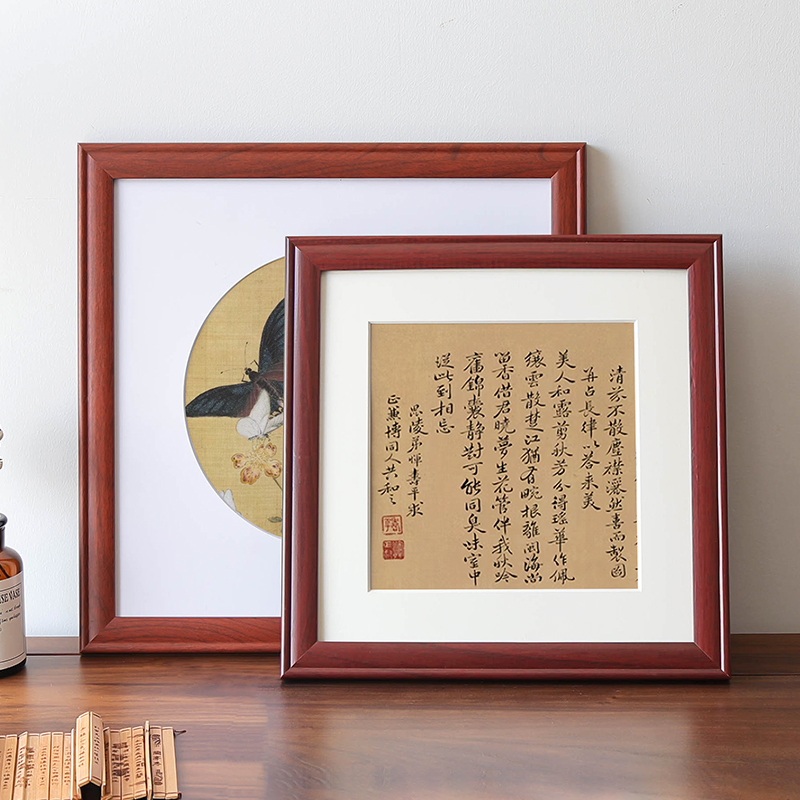 清芬不散塵襟灑然喜而製圖
并占長律以答來美
美人和露剪秋芳分得瑤華作佩
纕雲散楚江猶有畹根離閬海尚
留香借君曉夢生花管伴我秋吟
舊錦囊靜對可能同臭味室中
從此到相忘
毘陵弟惲壽平求
正兼博同人共和之
SE VASE